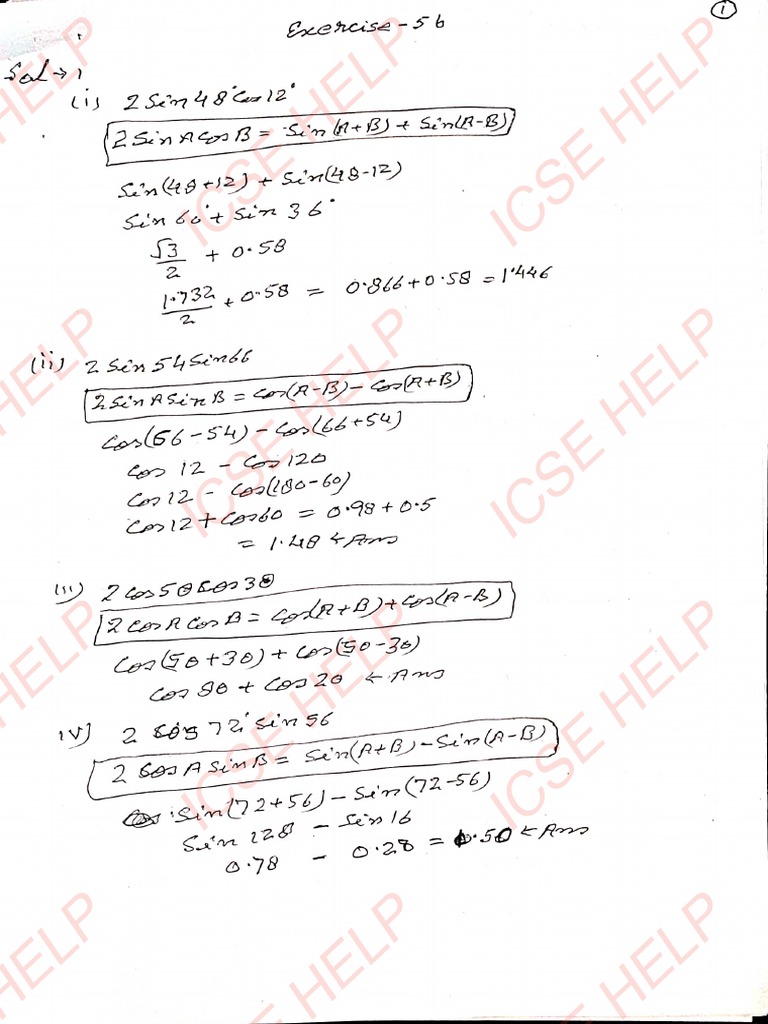 ①
Exercise-5b
Sol → 1
(i) 2 Sin 48° Cos 12°
2 Sin A Cos B = Sin(A+B) + Sin(A-B)
Sin(48+12) + Sin(48-12)
Sin 60° + Sin 36°
√3/2 + 0.58
1.732/2 + 0.58 = 0.866 + 0.58 = 1.446
(ii) 2 Sin 54 Sin 66
2 Sin A Sin B = Cos(A-B) - Cos(A+B)
Cos(66-54) - Cos(66+54)
Cos 12 - Cos 120
Cos 12 - Cos(180-60)
Cos 12 + Cos 60 = 0.98 + 0.5
= 1.48 ← Ans
(iii) 2 Cos 5θ Cos 3θ
2 Cos A Cos B = Cos(A+B) + Cos(A-B)
Cos(5θ+3θ) + Cos(5θ-3θ)
Cos 8θ + Cos 2θ ← Ans
iv) 2 Cos 72° Sin 56
2 Cos A Sin B = Sin(A+B) - Sin(A-B)
Sin(72+56) - Sin(72-56)
Sin 128 - Sin 16
0.78 - 0.28 = 0.50 ← Ans
ICSE HELP
ICSE HELP
ICSE HELP
ICSE HELP
ICSE HELP
ICSE HELP
ICSE HELP
ICSE HELP
ICSE HELP
ICSE HELP
ICSE HELP
ICSE HELP